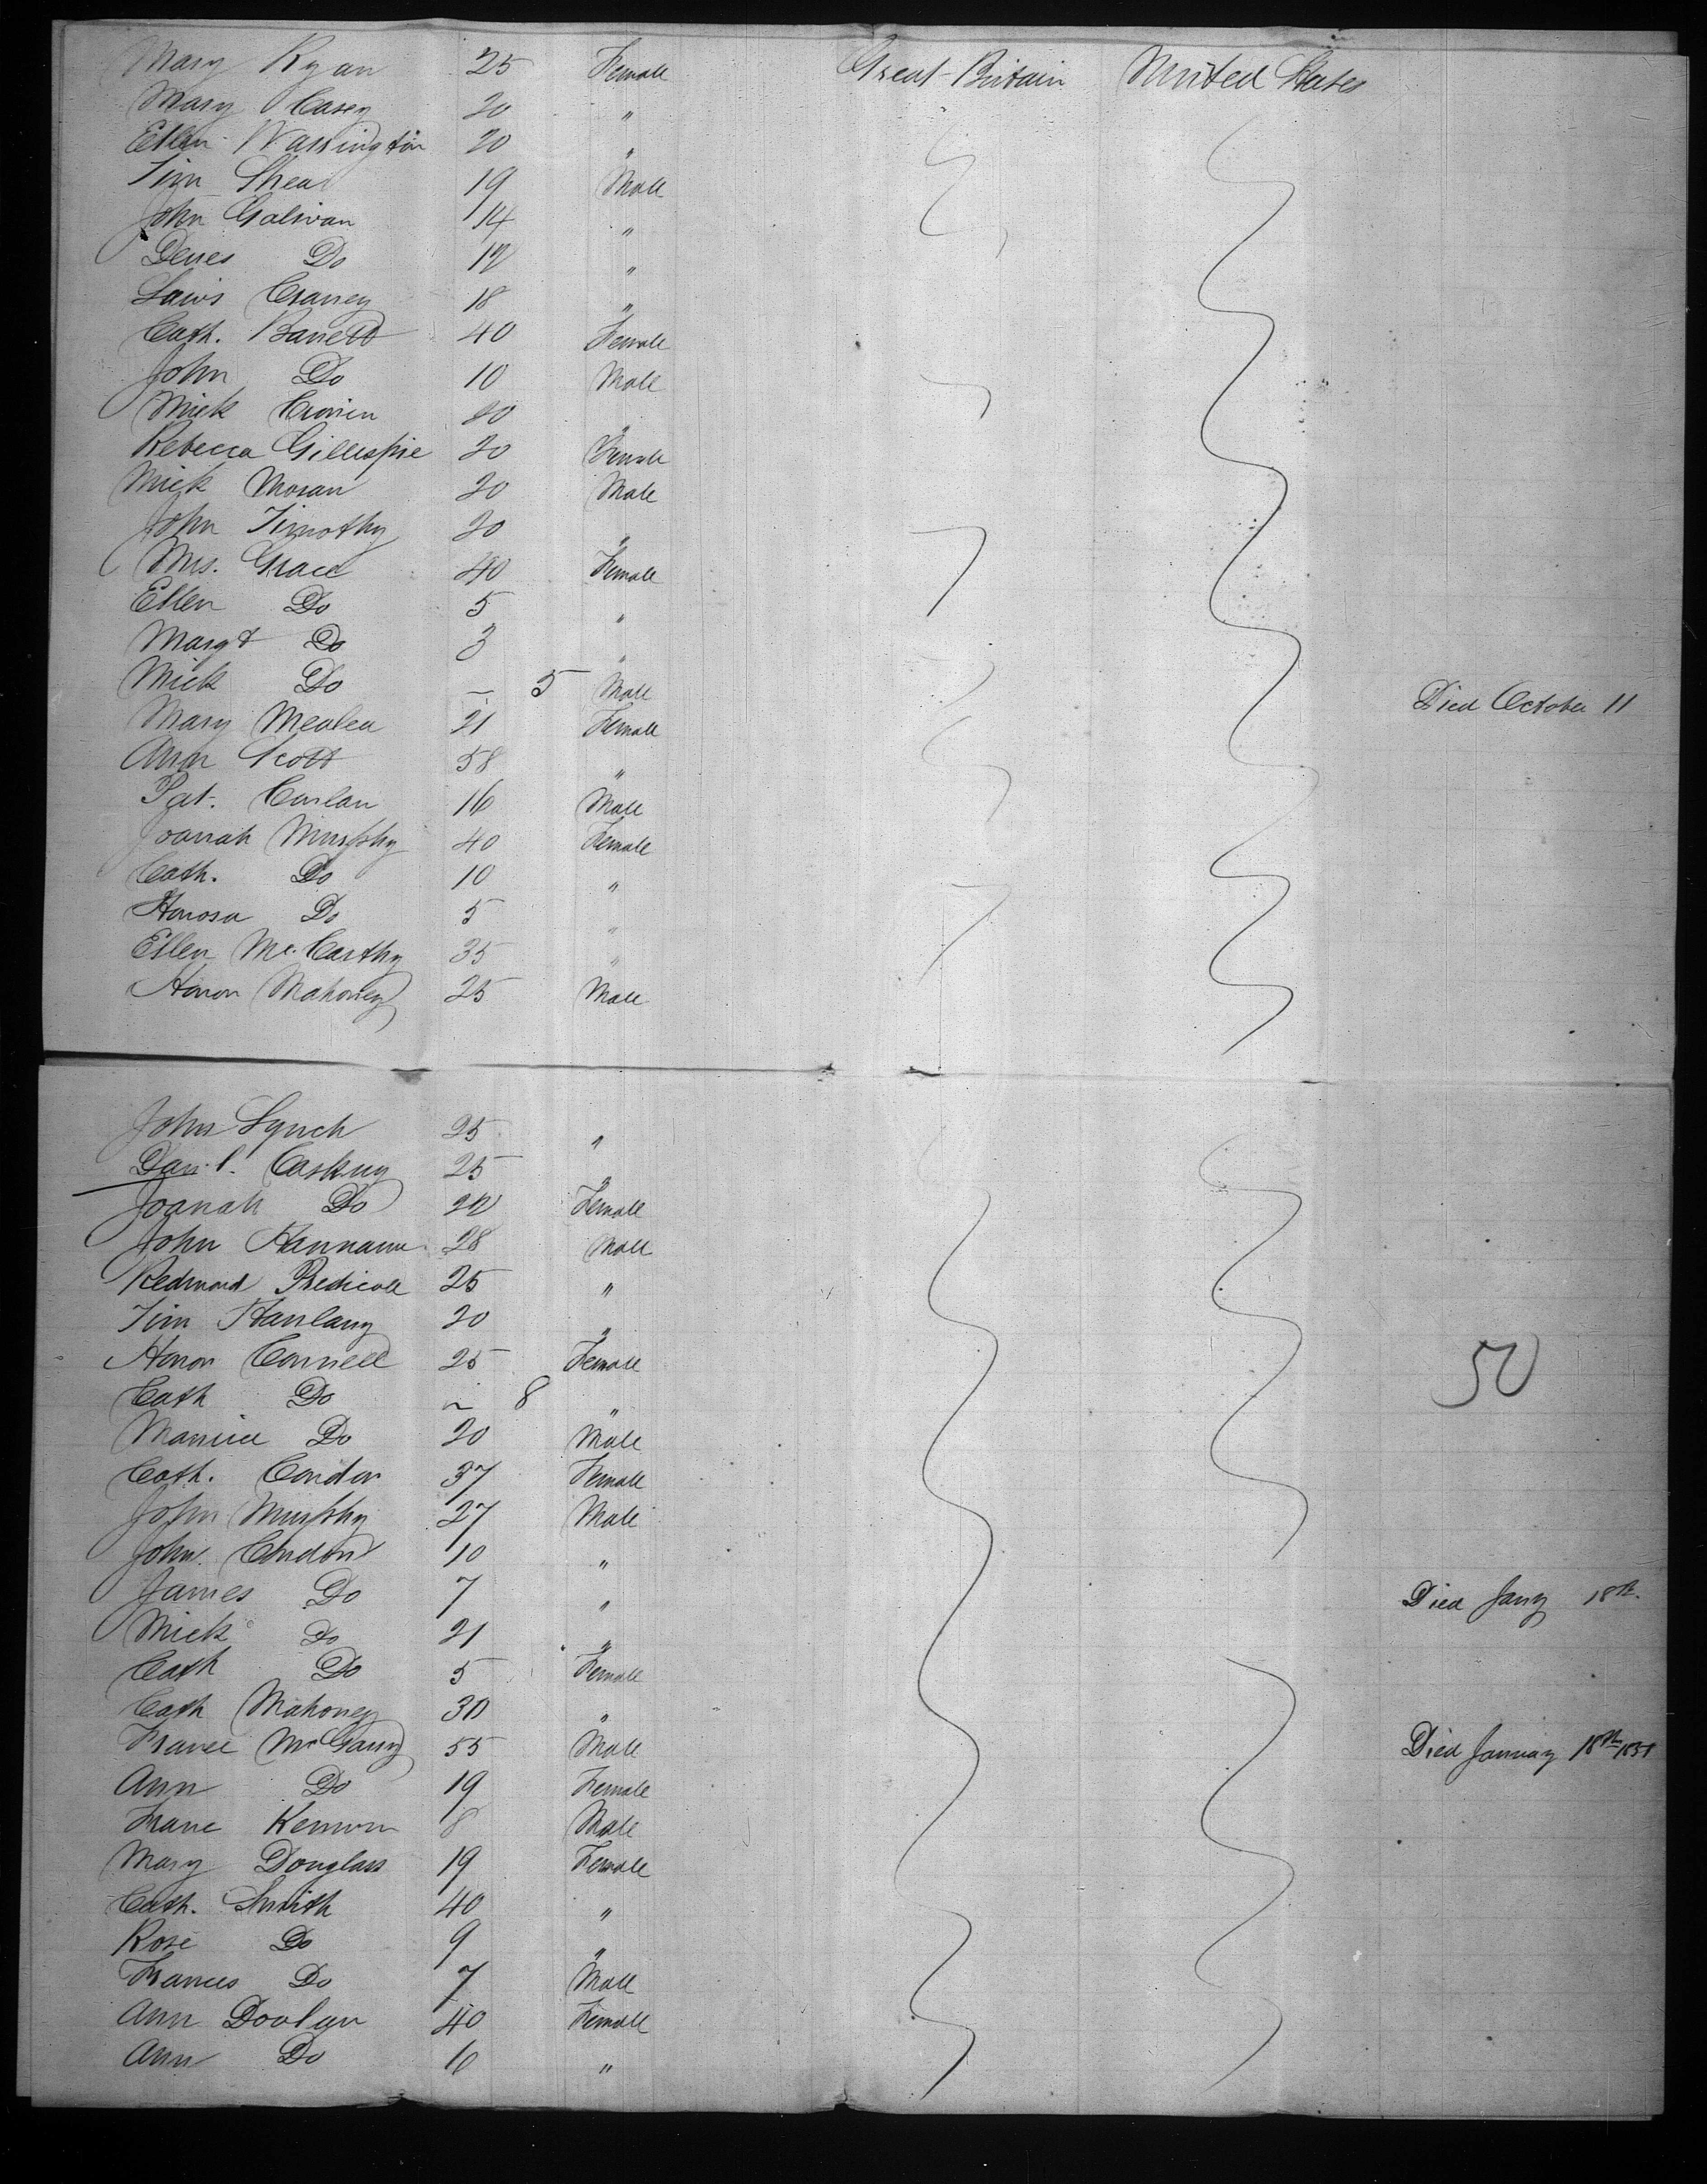 Mary Ryan 25 Female Great-Britain United States
Mary Casey 20 "
Ellen Warrington 20 "
Tim Shea 19 Male
John Galivan 14 "
Do 12 "
18 "
Cath. Barrett 40 Female
John Do 10 Male
Mick 20 "
Rebecca Gillespie 20 Female
Mick Moran 20 Male
John Timothy 20 "
Mrs. Grace 40 Female
Ellen Do 5 "
Margt Do 3 "
Mick Do – 5 Male Died October 11
Mary Mealea 21 Female
Ann Scott 58 "
Pat. Carlan 16 Male
Joanah Murphy 40 Female
Cath. Do 10 "
Honora Do 5 "
Ellen Mc.Carthy 35 "
Honor Mahoney 25 Male
John Lynch 25 "
Danl. Caskey 25 "
Joanah Do 22 Female
John 28 Male
Redmond 25 "
Tim 20 "
Honor Connell 25 Female
50
Cath Do ~ 8 "
Maurice Do 20 Male
Cath. Condon 37 Female
John Murphy 27 Male
John Condon 10 "
James Do 7 " Died Jany 18th.
Mick Do 21 "
Cath Do 5 Female
Cath Mahoney 30 "
McGarry 55 Male Died January 18th 1851
Ann Do 19 Female
8 Male
Mary Douglass 19 Female
Cath. Smith 40 "
Rose Do 9 "
Frances Do 7 Male
Ann Doolan 40 Female
Ann Do "